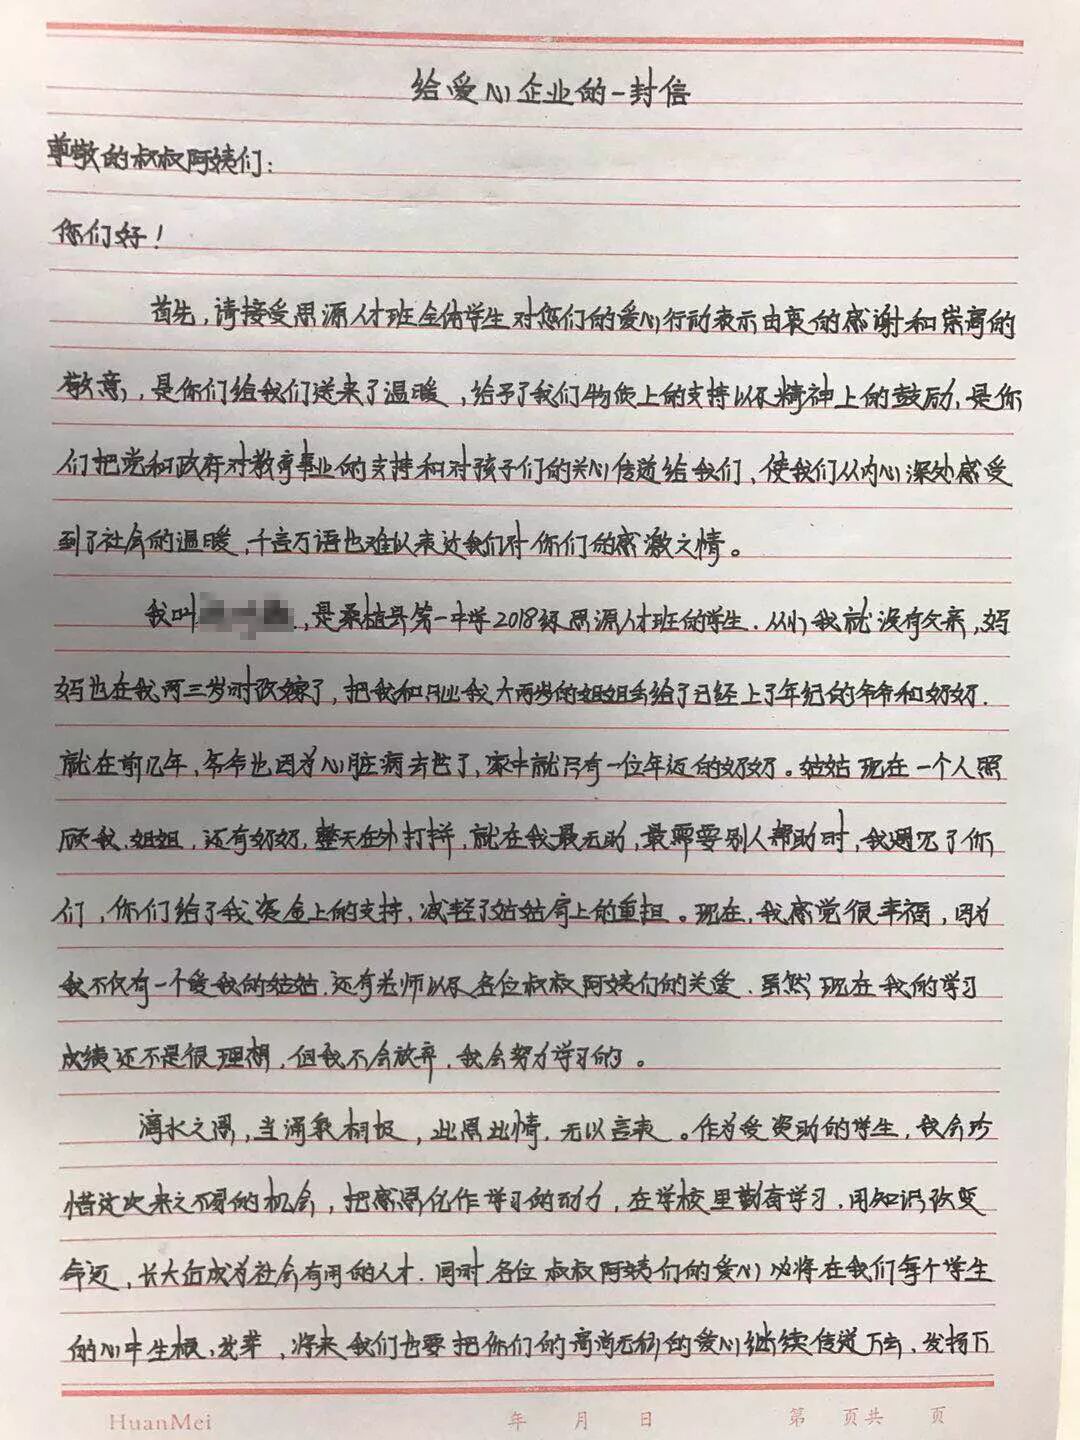 给爱心企业的一封信
尊敬的叔叔阿姨们：
您们好！
首先，请接受思源人才班全体学生对您们的爱心行动表示由衷的感谢和崇高的
敬意，是你们给我们送来了温暖，给予了我们物质上的支持以及精神上的鼓励，是你
们把党和政府对教育事业的支持和对孩子们的关心传递给我们，使我们从内心深处感受
到了社会的温暖，千言万语也难以表达我们对你们的感激之情。
我叫，是桑植县第一中学2018级思源人才班的学生．从小我就没有父亲，妈
妈也在我两三岁时改嫁了，把我和只比我大两岁的姐姐丢给了已经上了年纪的爷爷和奶奶．
就在前几年，爷爷也因为心脏病去世了，家中就只有一位年迈的奶奶。姑姑现在一个人照
顾我，姐姐，还有奶奶，整天在外打拼，就在我最无助，最需要别人帮助时，我遇见了你
们，你们给了我资金上的支持，减轻了姑姑肩上的重担。现在，我感觉很幸福，因为
我不仅有一个爱我的姑姑，还有老师以及各位叔叔阿姨们的关爱．虽然现在我的学习
成绩还不是很理想，但我不会放弃，我会努力学习的。
滴水之恩，当涌泉相报，此恩此情，无以言表。作为受资助的学生，我会珍
惜这次来之不易的机会，把感恩化作学习的动力，在学校里勤奋学习，用知识改变
命运，长大后成为社会有用的人才．同时各位叔叔阿姨们的爱心必将在我们每个学生
的心中生根，发芽，将来我们也要把你们的高尚无私的爱心继续传递下去，发扬下
HuanMei 年 月 日 第 页共 页